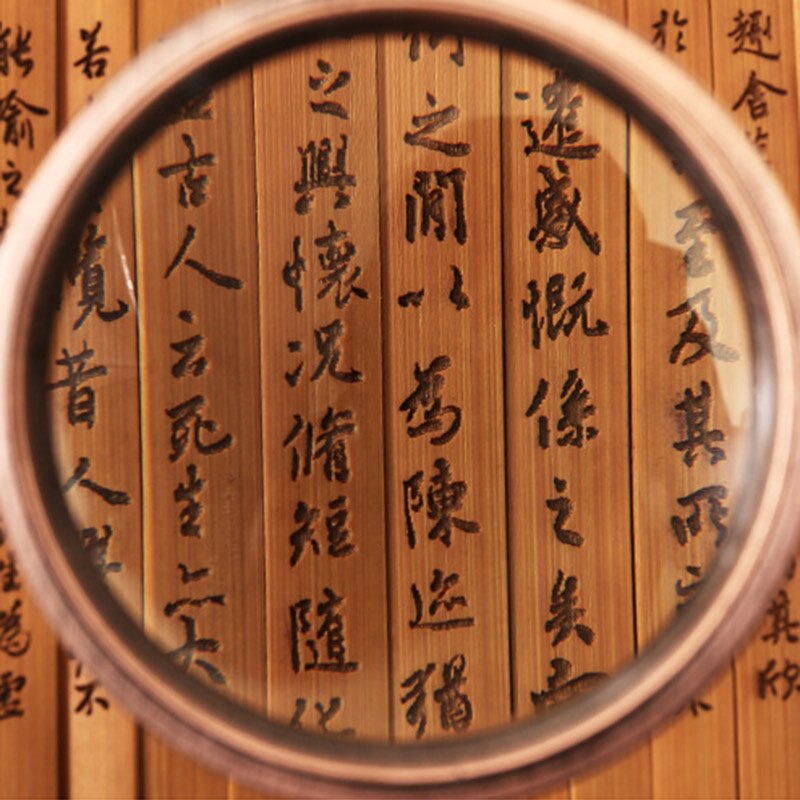 趣舍 其欣
於 至及其所
遷感慨係之矣
之閒以為陳迹猶
之興懷況脩短隨化
古人云死生亦大
若 覽昔人興 不
能喻之 生為虛